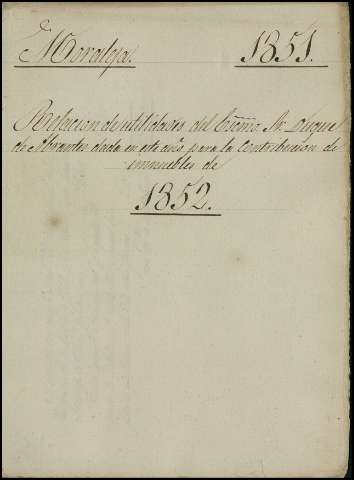 Moraleja. 1851.
Relacion de utilidades del Excmo. Sr. Duque
de Abrantes dada en este año para la Contribucion de
inmuebles de
1852.